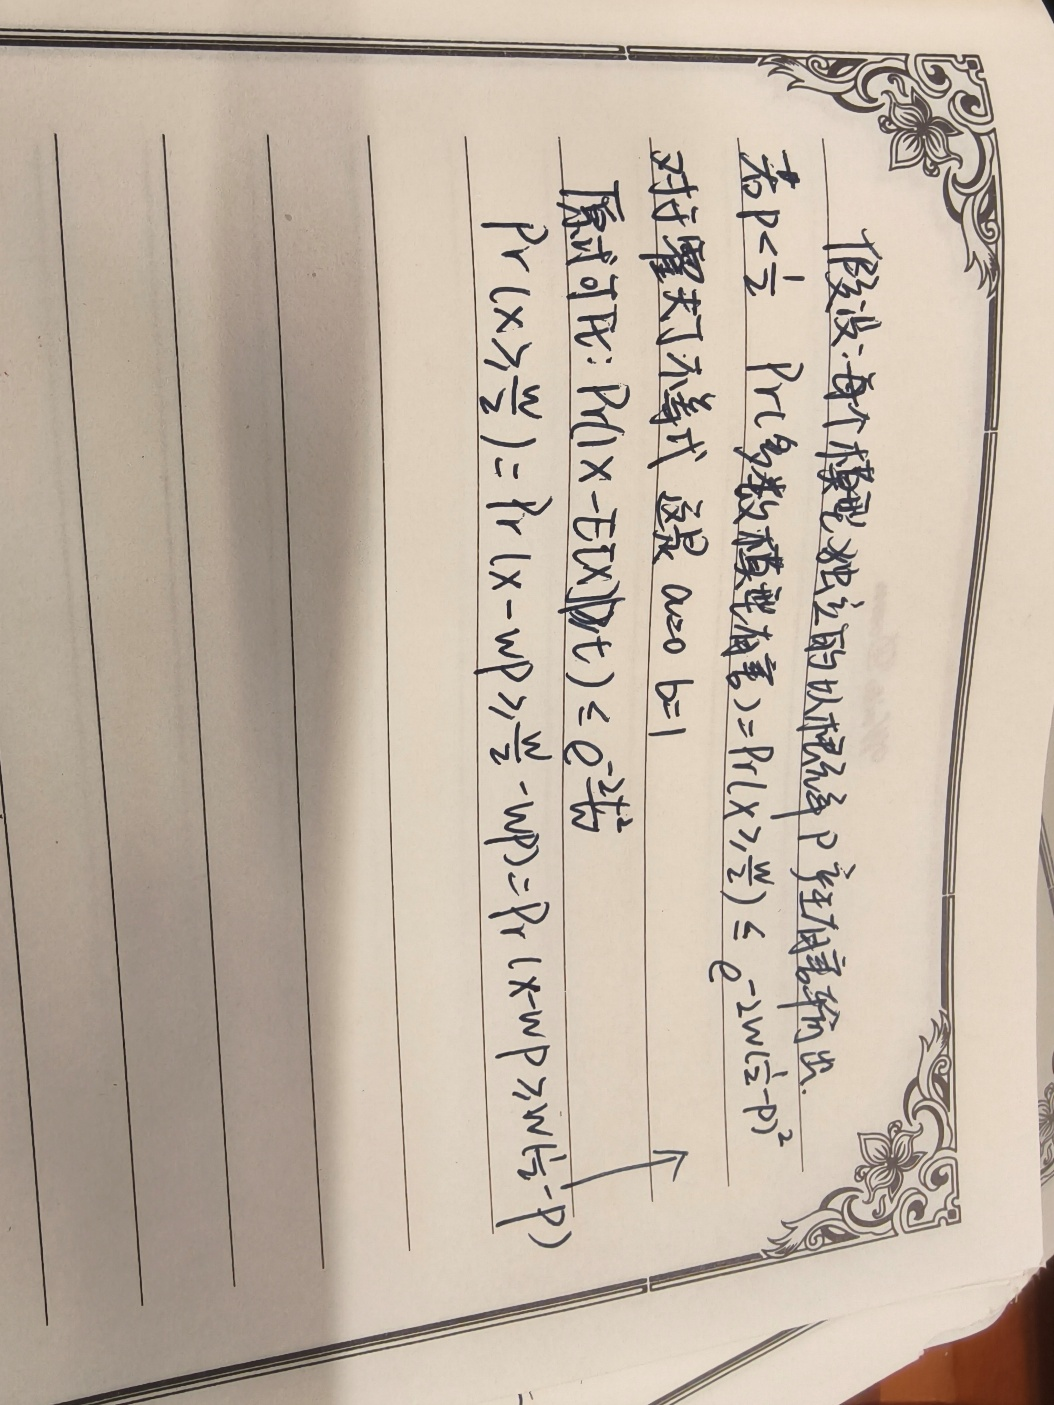 假设:每个模型独立的以概率 p 产生有害输出.
若 p<1/2 Pr(多数模型有害)=Pr(x≥w/2)≤e^{-2w(1/2-p)^2}
对于霍夫丁不等式 这是 a=0 b=1
原式可化: Pr(|x-E[x]|≥t)≤e^{-2t^2/w}
Pr(x≥w/2)=Pr(x-wp≥w/2-wp)=Pr(x-wp≥w(1/2-p)